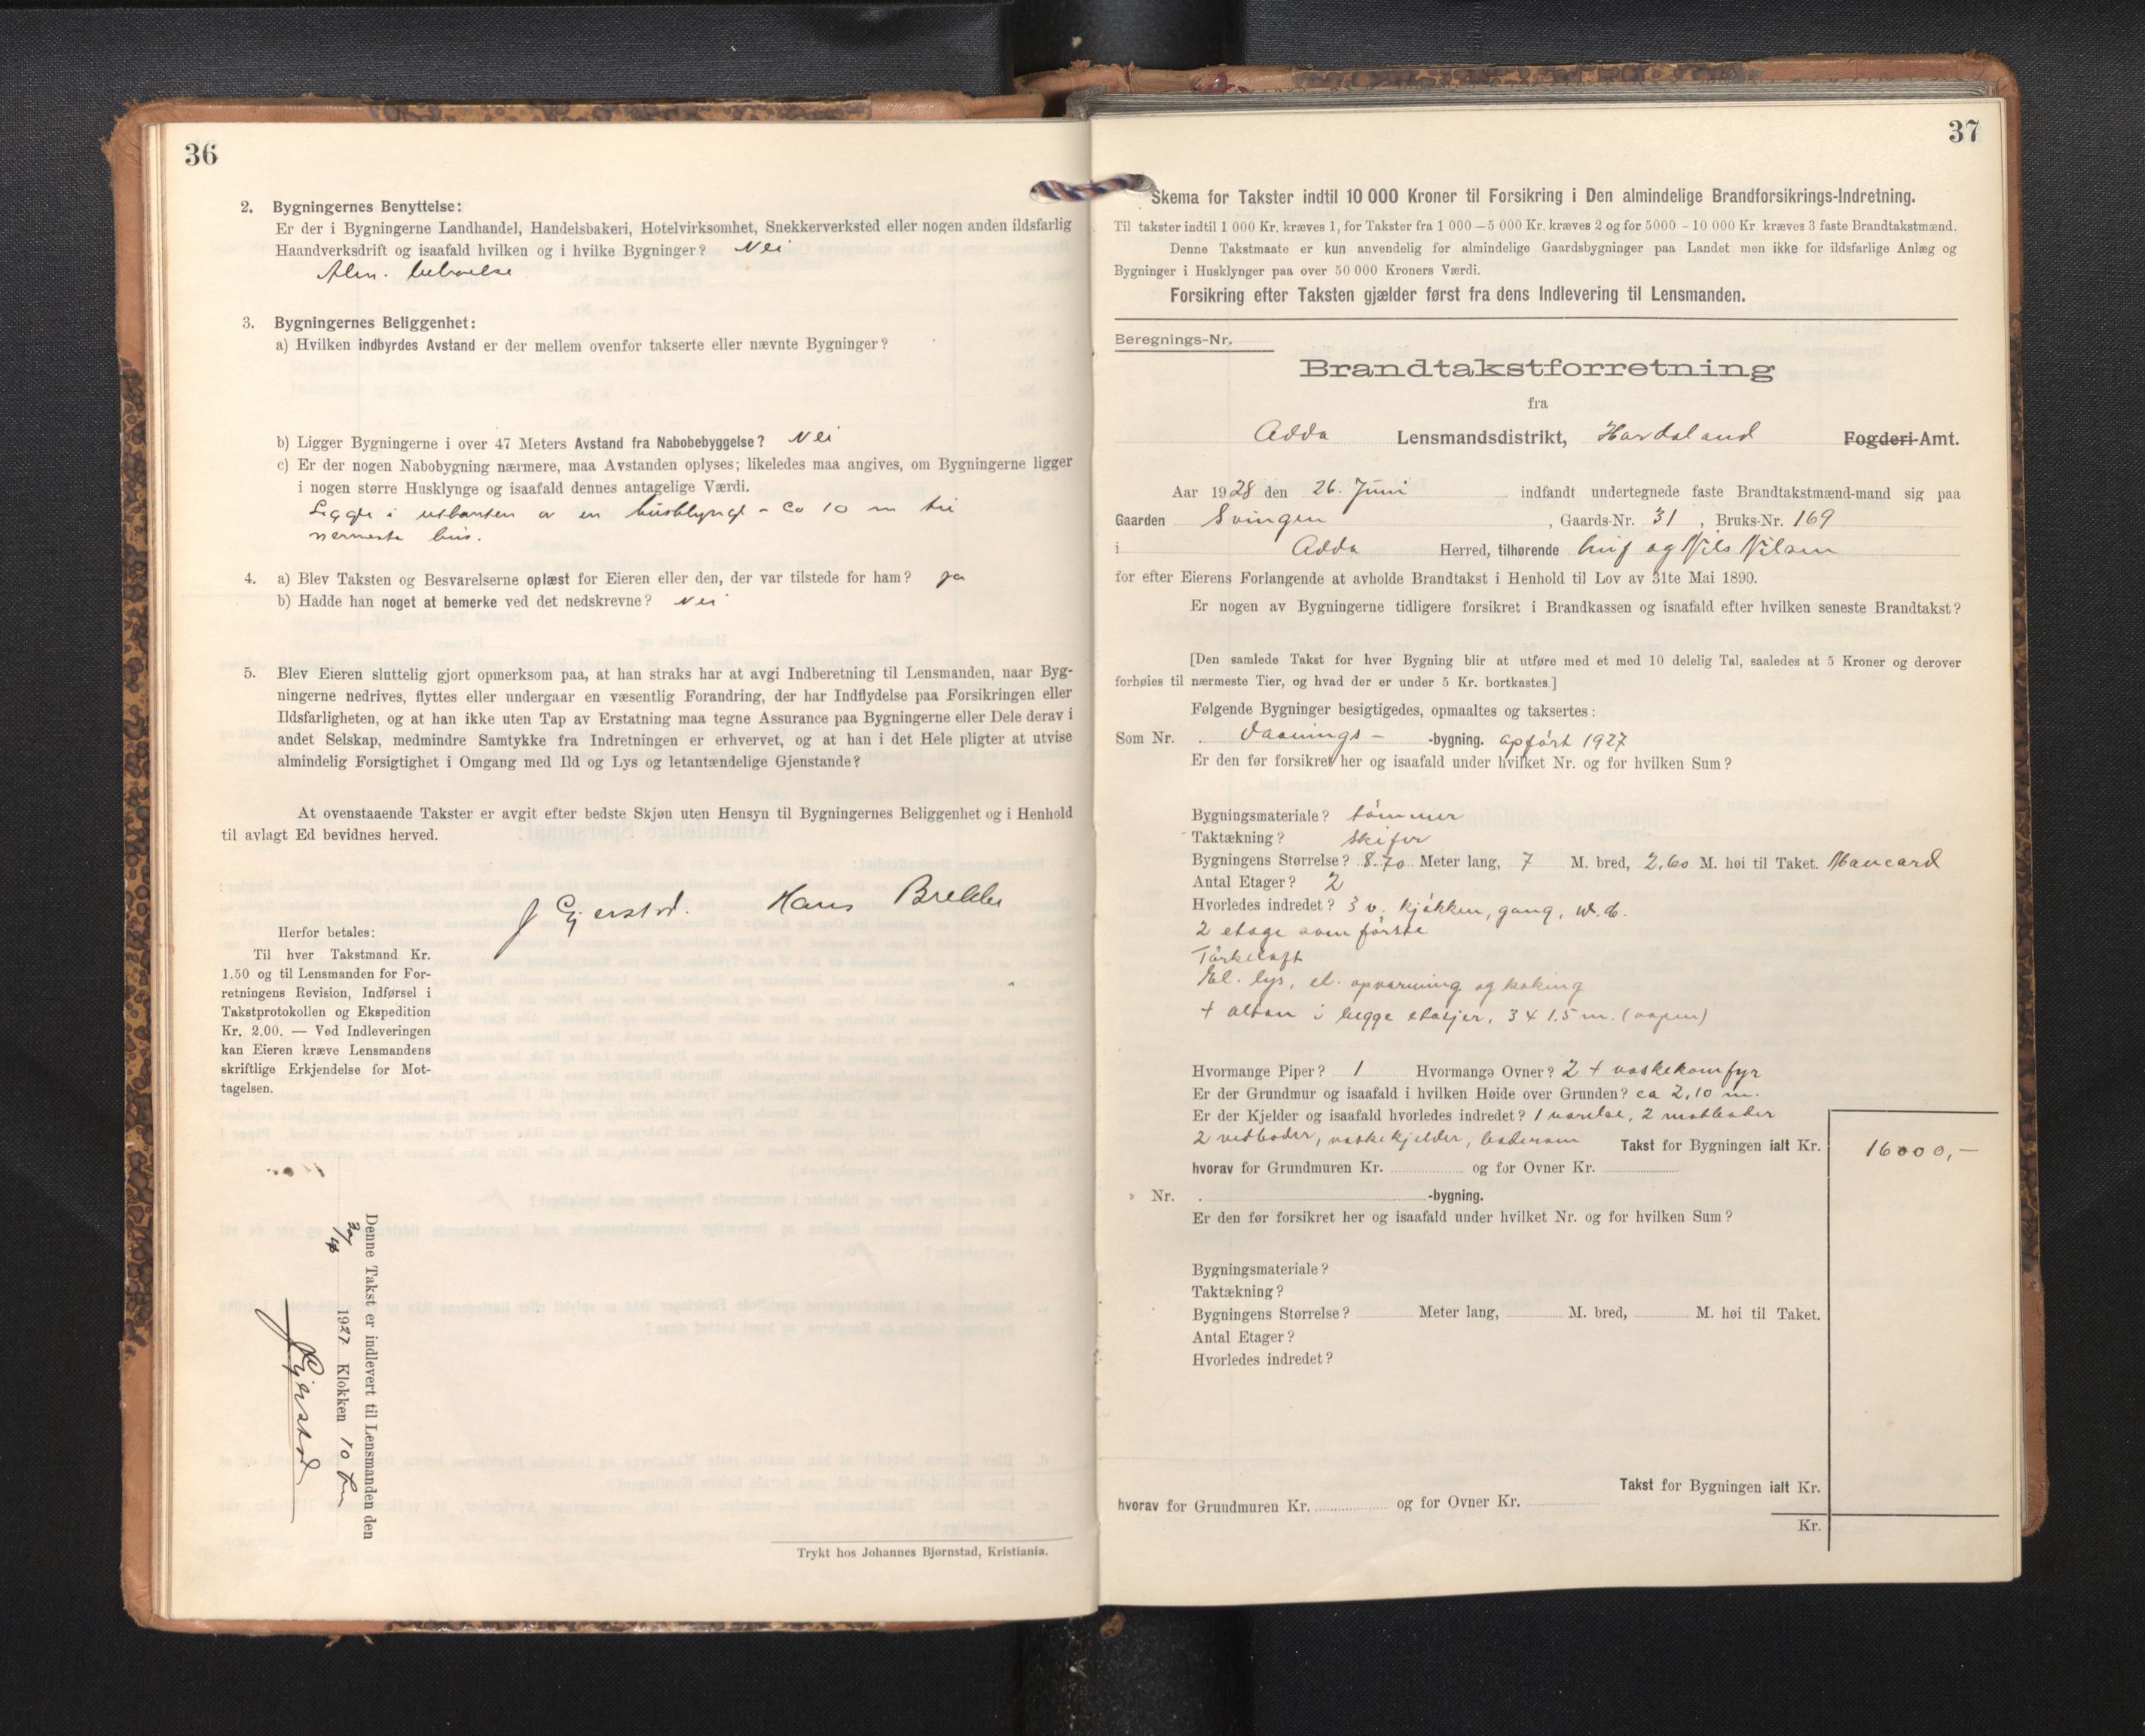 36
2. Bygningernes Benyttelse:
Er der i Bygningerne Landhandel, Handelsbakeri, Hotelvirksomhet, Snekkerverksted eller nogen anden ildsfarlig
Haandverksdrift og isaafald hvilken og i hvilke Bygninger? Nei
Alm. beboelse
3. Bygningernes Beliggenhet:
a) Hvilken indbyrdes Avstand er der mellem ovenfor takserte eller nævnte Bygninger?
b) Ligger Bygningerne i over 47 Meters Avstand fra Nabobebyggelse? Nei
c) Er der nogen Nabobygning nærmere, maa Avstanden oplyses; likeledes maa angives, om Bygningerne ligger
i nogen større Husklynge og isaafald dennes antagelige Værdi.
Ligger i utkanten av en husklynge - ca 10 m til
nermeste hus.
4. a) Blev Taksten og Besvarelserne oplæst for Eieren eller den, der var tilstede for ham? ja
b) Hadde han noget at bemerke ved det nedskrevne? Nei
5. Blev Eieren sluttelig gjort opmerksom paa, at han straks har at avgi Indberetning til Lensmanden, naar Byg-
ningerne nedrives, flyttes eller undergaar en væsentlig Forandring, der har Indflydelse paa Forsikringen eller
Ildsfarligheten, og at han ikke uten Tap av Erstatning maa tegne Assurance paa Bygningerne eller Dele derav i
andet Selskap, medmindre Samtykke fra Indretningen er erhvervet, og at han i det Hele pligter at utvise
almindelig Forsigtighet i Omgang med Ild og Lys og letantændelige Gjenstande?
At ovenstaaende Takster er avgit efter bedste Skjøn uten Hensyn til Bygningernes Beliggenhet og i Henhold
til avlagt Ed bevidnes herved.
J Gjerstad. Hans Brekke
Herfor betales:
Til hver Takstmand Kr.
1.50 og til Lensmanden for For-
retningens Revision, Indførsel i
Takstprotokollen og Ekspedition
Kr. 2.00. — Ved Indleveringen
kan Eieren kræve Lensmandens
skriftlige Erkjendelse for Mot-
tagelsen.
Denne Takst er indlevert til Lensmanden den
1927 Klokken 10
Gjerstad
Trykt hos Johannes Bjørnstad, Kristiania.
37
Skema for Takster indtil 10 000 Kroner til Forsikring i Den almindelige Brandforsikrings-Indretning.
Til takster indtil 1 000 Kr. kræves 1, for Takster fra 1 000 — 5 000 Kr. kræves 2 og for 5000 - 10 000 Kr. kræves 3 faste Brandtakstmænd.
Denne Takstmaate er kun anvendelig for almindelige Gaardsbygninger paa Landet men ikke for ildsfarlige Anlæg og
Bygninger i Husklynger paa over 50 000 Kroners Værdi.
Forsikring efter Taksten gjælder først fra dens Indlevering til Lensmanden.
Beregnings-Nr.
Brandtakstforretning
fra
Odda Lensmandsdistrikt, Hordaland Fogderi-Amt.
Aar 1928 den 26. Juni indfandt undertegnede faste Brandtakstmænd-mand sig paa
Gaarden Svingen, Gaards-Nr. 31, Bruks-Nr. 169
i Odda Herred, tilhørende og Nils Nilsen
for efter Eierens Forlangende at avholde Brandtakst i Henhold til Lov av 31te Mai 1890.
Er nogen av Bygningerne tidligere forsikret i Brandkassen og isaafald efter hvilken seneste Brandtakst?
[Den samlede Takst for hver Bygning blir at utføre med et med 10 delelig Tal, saaledes at 5 Kroner og derover
forhøies til nærmeste Tier, og hvad der er under 5 Kr. bortkastes.]
Følgende Bygninger besigtigedes, opmaaltes og taksertes:
Som Nr. Vaanings- -bygning. opført 1927
Er den før forsikret her og isaafald under hvilket Nr. og for hvilken Sum?
Bygningsmateriale? tømmer
Taktækning? skifer
Bygningens Størrelse? 8.70 Meter lang, 7 M. bred, 2,60 M. høi til Taket. Mancard
Antal Etager? 2
Hvorledes indredet? 3 v. kjøkken, gang, w.c.
2 etage som første
Tørkeloft
El. lys, el. opvarming og koking
+ altan i begge etasjer, 3 x 1.5 m. (aapen)
Hvormange Piper? 1 Hvormange Ovner? 2 + vaskekomfyr
Er der Grundmur og isaafald i hvilken Høide over Grunden? ca 2,10 m.
Er der Kjelder og isaafald hvorledes indredet? 1 varelse, 2 matboder
2 vedboder, vaskekjelder, baderom Takst for Bygningen ialt Kr. 16000,-
hvorav for Grundmuren Kr. og for Ovner Kr.
» Nr. -bygning.
Er den før forsikret her og isaafald under hvilket Nr. og for hvilken Sum?
Bygningsmateriale?
Taktækning?
Bygningens Størrelse? Meter lang, M. bred, M. høi til Taket.
Antal Etager?
Hvorledes indredet?
Takst for Bygningen ialt Kr.
hvorav for Grundmuren Kr. og for Ovner Kr.
Kr.